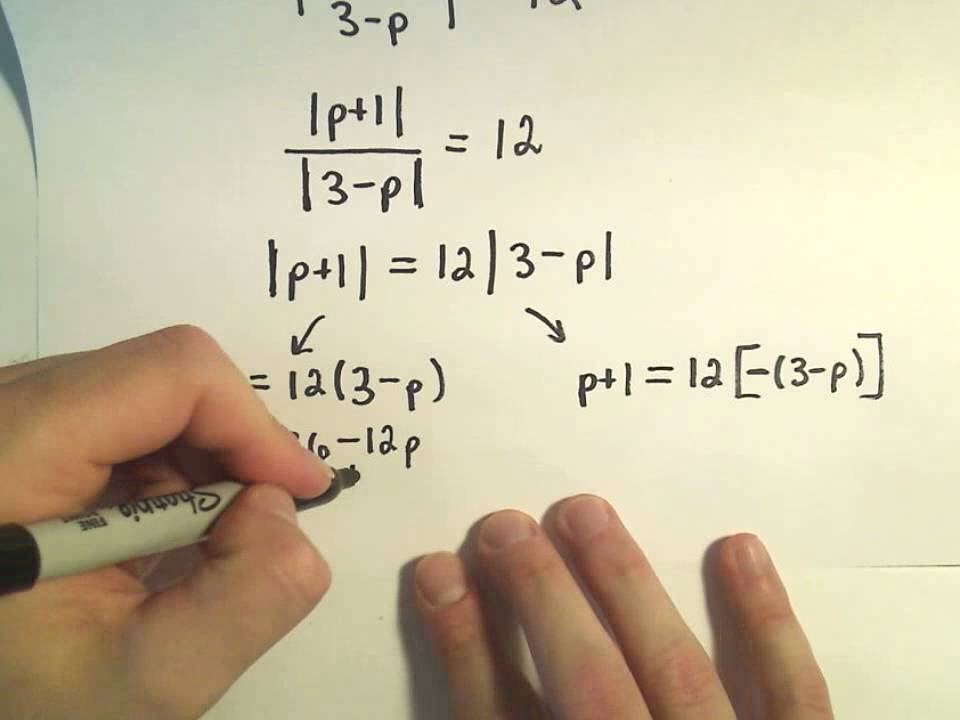 3-p
|p+1|
|3-p| = 12
|p+1| = 12|3-p|
= 12(3-p)
p+1 = 12[-(3-p)]
-12p
Sharpie
FINE